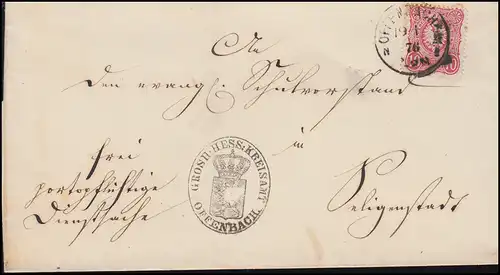 OFFENBACH
19 1
76
10
An
den evangl. Schulvorstand
in
Seligenstadt
frei
portopflichtige
Dienstsache
GROSH. HESS. KREISAMT
OFFENBACH.